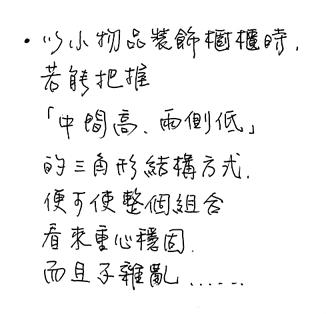 • 以小物品裝飾櫥櫃時,
若能把握
「中間高、兩側低」
的三角形結構方式,
便可使整個組合
看來重心穩固,
而且不雜亂……